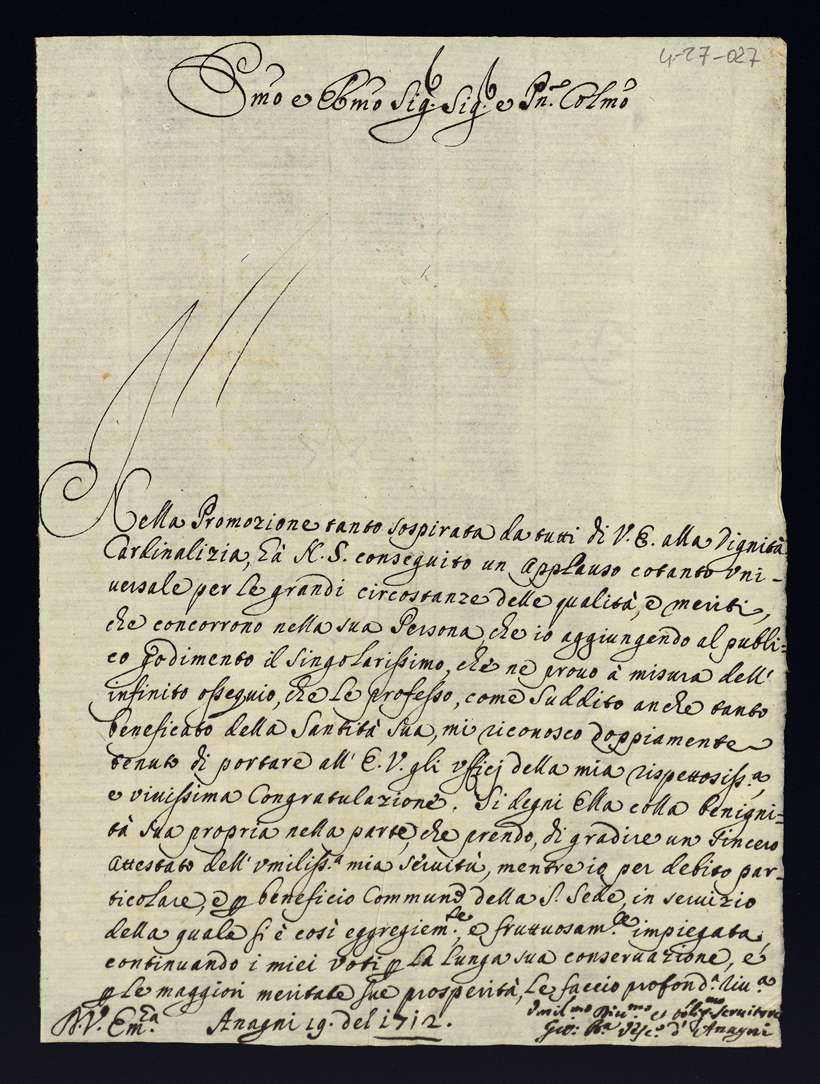 4-27-027
Emo e Rmo Sig.r Sig.r e Pn.e Colmo
Nella Promozione tanto sospirata da tutti di V. E. alla Dignità
Cardinalizia, hà N. S. conseguito un applauso cotanto vni-
uersale per le grandi circostanze delle qualità, e meriti,
che concorrono nella sua Persona, che io aggiungendo al publi=
co godimento il singolarissimo, che ne prouo à misura dell'
infinito ossequio, che le professo, come suddito anche tanto
beneficato della Santità Sua, mi riconosco doppiamente
tenuto di portare all' E. V. gli vfficj della mia rispettosiss.a
e viuissima Congratulazione. Si degni Ella colla benigni=
tà sua propria nella parte, che prendo, di gradire un sincero
attestato dell' vmiliss.a mia seruitù, mentre io per debito par-
ticolare, e p beneficio Commune della S. Sede, in seruizio
della quale si è così eggregiem.te, e fruttuosam.te impiegata,
continuando i miei voti p la lunga sua conseruazione, e
p le maggiori meritate sue prosperità, le faccio profond.a riu.a
D. V. Em.za Anagni 19. del 1712.
Vmil.mo Diu.mo et obblig.mo Seruitore
Gio: Ba Vesc.o d'Anagni